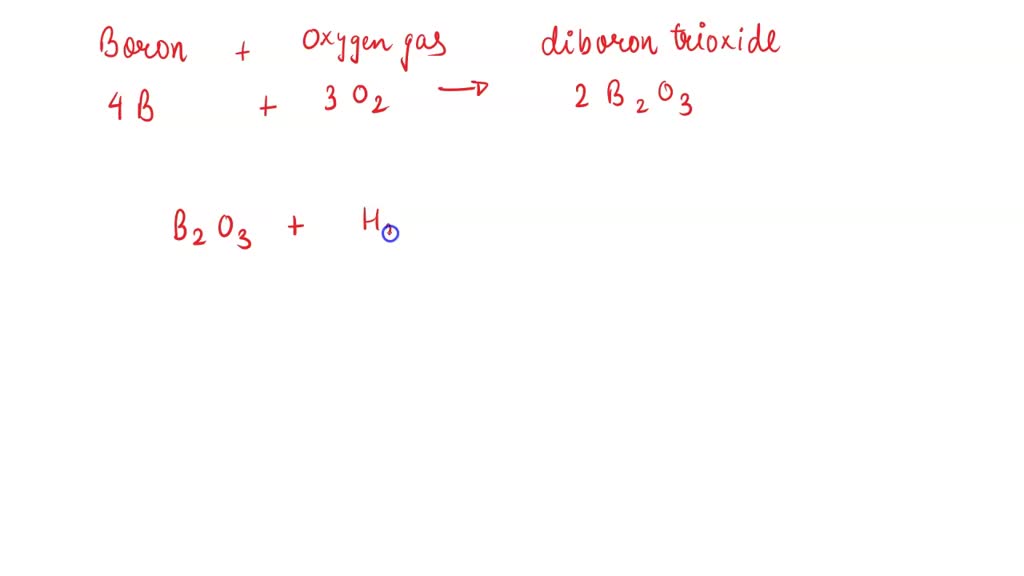 Boron + Oxygen gas diboron trioxide
4 B + 3 O2 → 2 B2O3
B2O3 + H2